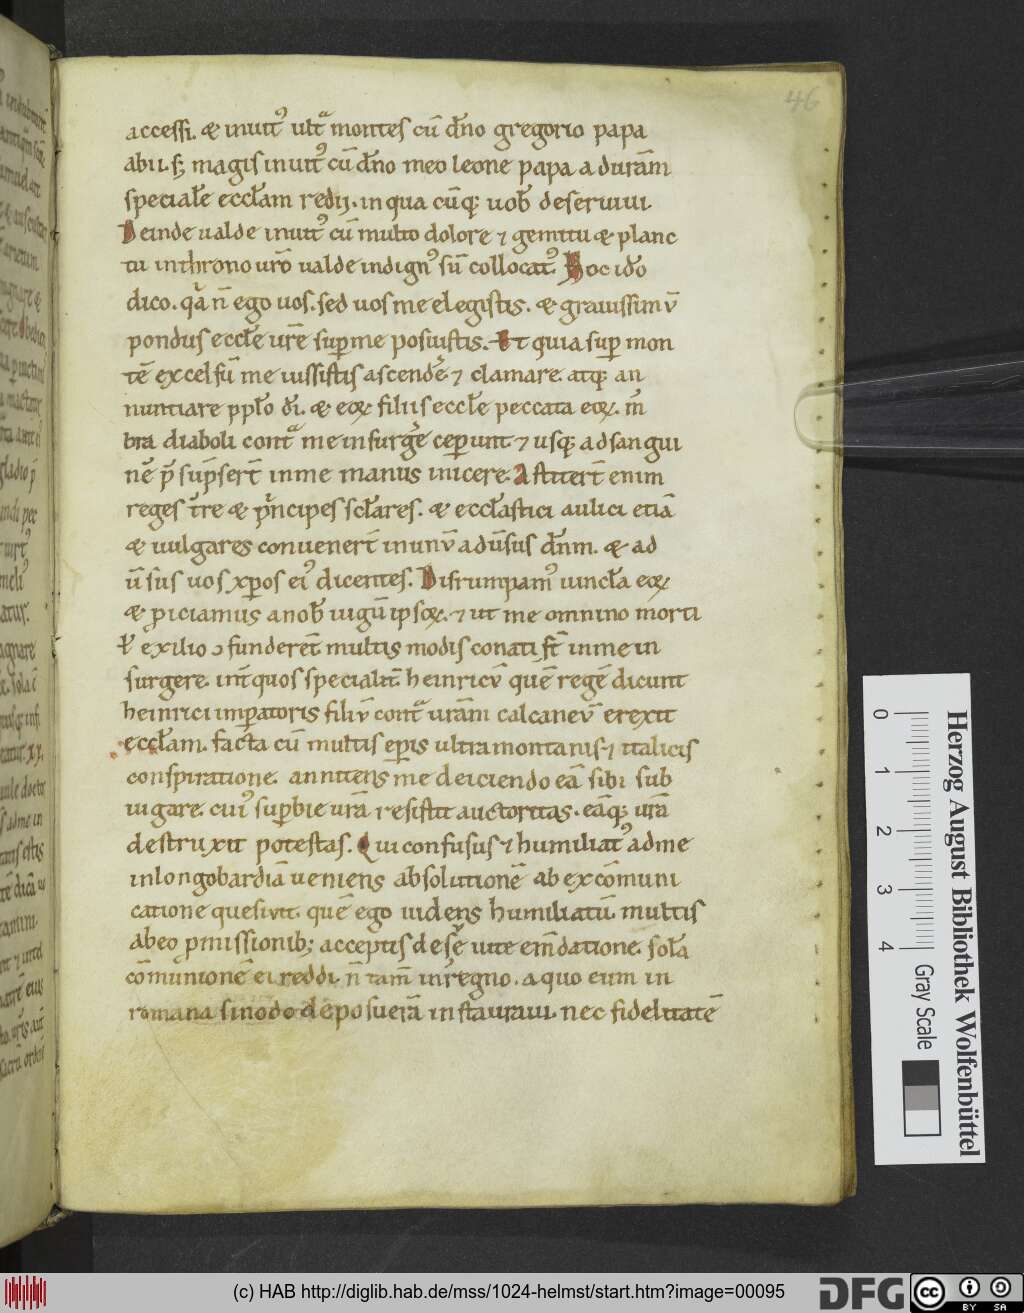 46
accessi. & inuit᷒ ult᷑ montes cū dño gregorio papa
abii. s; magis inuit᷒ cū dño meo leone papa ad urām
speciale̅ eccl̅am redij. in qua cūq; uob̅ deseruiui.
Deinde ualde inuit᷒ cū multo dolore ⁊ gemitu & planc
tu in throno ur̅o ualde indign᷒ sū collocat᷒. Hoc id̅o
dico. qa n̅ ego uos. sed uos me elegistis. & grauissimū
pondus eccl̅e ur̅e sup me posuistis. Et quia sup mon
tē excelsū me iussistis ascend̅e ⁊ clamare. atq; an
nuntiare ppl̅o dī. & eoꝝ filiis eccl̅e peccata eoꝝ. m̅
bra diaboli cont᷑ me insurg̅e ceperunt ⁊ usq; ad sangui
nē p̅sūpsert̅ in me manus inicere. Astitert̅ enim
reges t̅re & p̅ncipes scl̅ares. & eccl̅astici aulici etiā
& uulgares conuenert̅ in unū adūsus dn̅m. & ad
ūsus uos xp̅os ei᷒ dicentes. Disrumpam᷒ uincl̅a eoꝝ
& piciamus a nob̅ iugū ipsoꝝ. ⁊ ut me omnino morti
ł exilio ɔfunderet̅ multis modis conati st̅ in me in
surgere. int̅ quos specialit̅ heinricū quē regē dicunt
heinrici imperatoris filiū cont᷑ urām calcaneū erexit
eccl̅am. facta cū multis ep̅is ultramontanis ⁊ italicis
conspiratione. annitens me deiciendo eā sibi sub
iugare. cui᷒ supbie urā resistit auctoritas. eāq; urā
destruxit potestas. Qui confusus ⁊ humiliat᷒ ad me
in longobardiā ueniens absolutionē ab excōmuni
catione quesiuit. quē ego uidens humiliatū. multis
ab eo pmissionib; acceptis de s̅e uite em̅datione. solā
cōmunionē ei reddi. n̅ tam̅ in regno. a quo eum in
romana sinodo deposuerā instauraui. nec fidelitatē
0
1
2
3
4
Gray Scale
Herzog August Bibliothek Wolfenbüttel
(c) HAB http://diglib.hab.de/mss/1024-helmst/start.htm?image=00095
DFG
cc
BY SA